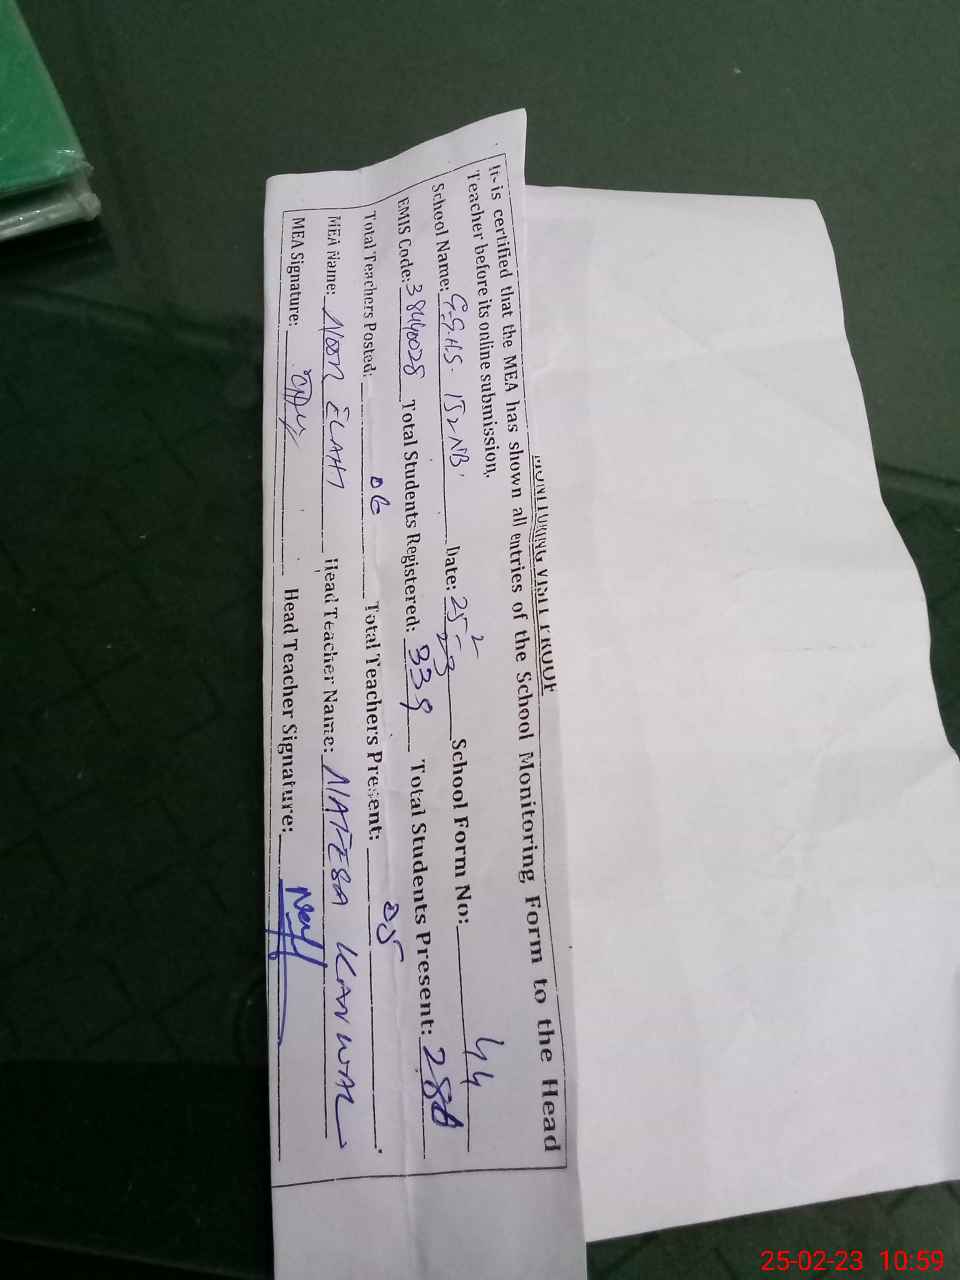 MONITORING VISIT PROOF
It is certified that the MEA has shown all entries of the School Monitoring Form to the Head
Teacher before its online submission.
School Name: G.G.H.S. 152 NB. Date: 25-2-23 School Form No: 44
EMIS Code: 38440028 Total Students Registered: 339 Total Students Present: 286
Total Teachers Posted: 06 Total Teachers Present: 05
MEA Name: NOOR ELAHI Head Teacher Name: NAFEESA KANWAL
MEA Signature: Head Teacher Signature:
25-02-23 10:59